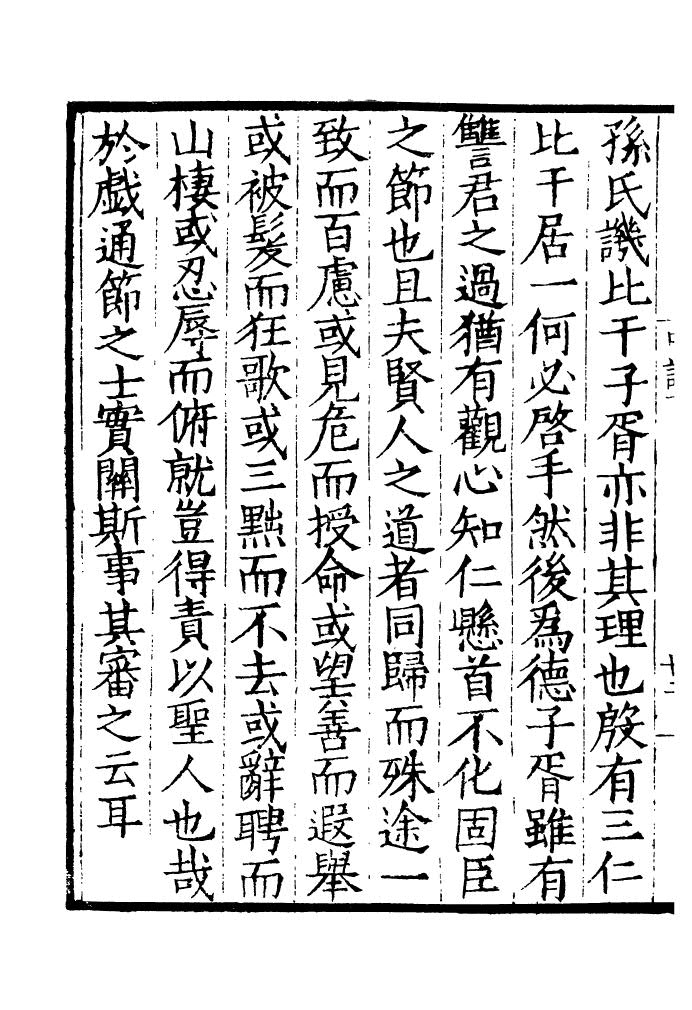 孫氏譏比干子胥亦非其理也殷有三仁
比干居一何必啓手然後爲德子胥雖有
讐君之過猶有觀心知仁懸首不化固臣
之節也且夫賢人之道者同歸而殊途一
致而百慮或見危而授命或望善而遐舉
或被髮而狂歌或三黜而不去或辭聘而
山棲或忍辱而俯就豈得責以聖人也哉
於戲通節之士實關斯事其審之云耳